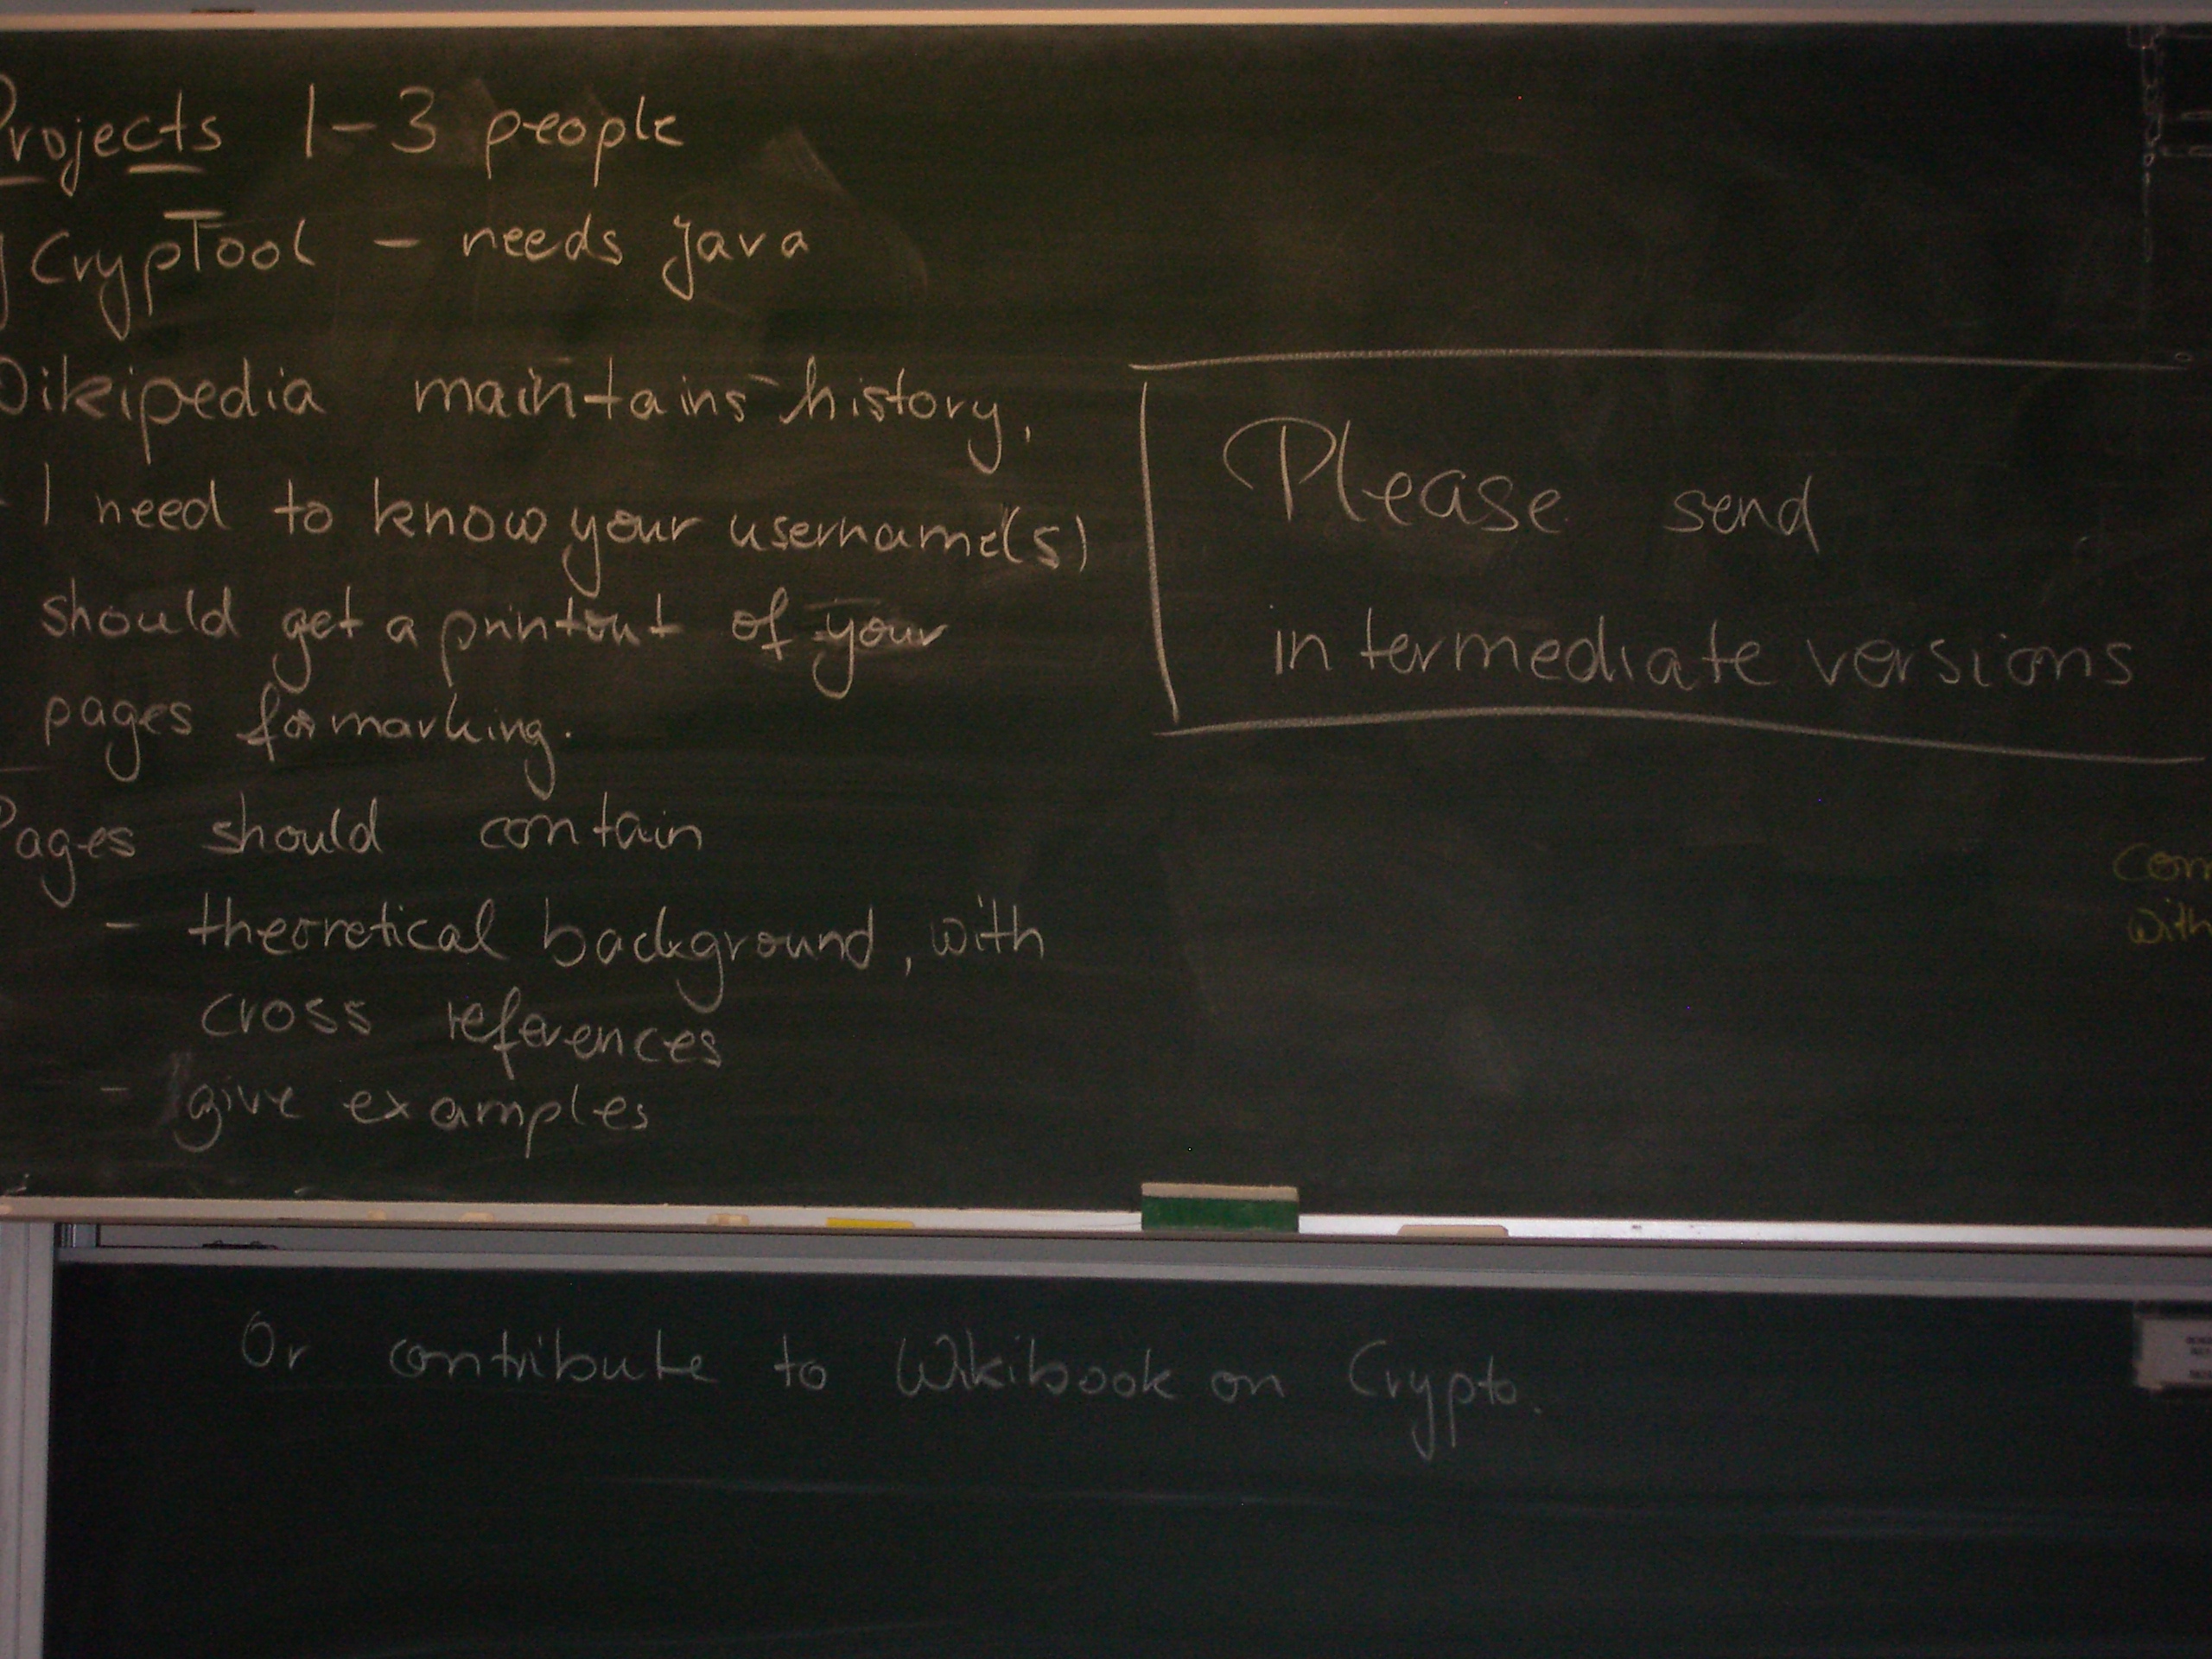 Projects 1-3 people
CrypTool - needs Java
Wikipedia maintains history,
I need to know your username(s)
should get a printout of your
pages for marking.
Pages should contain
- theoretical background, with
cross references
- give examples
Please send
intermediate versions
Com
with
Or contribute to Wikibook on Crypto.